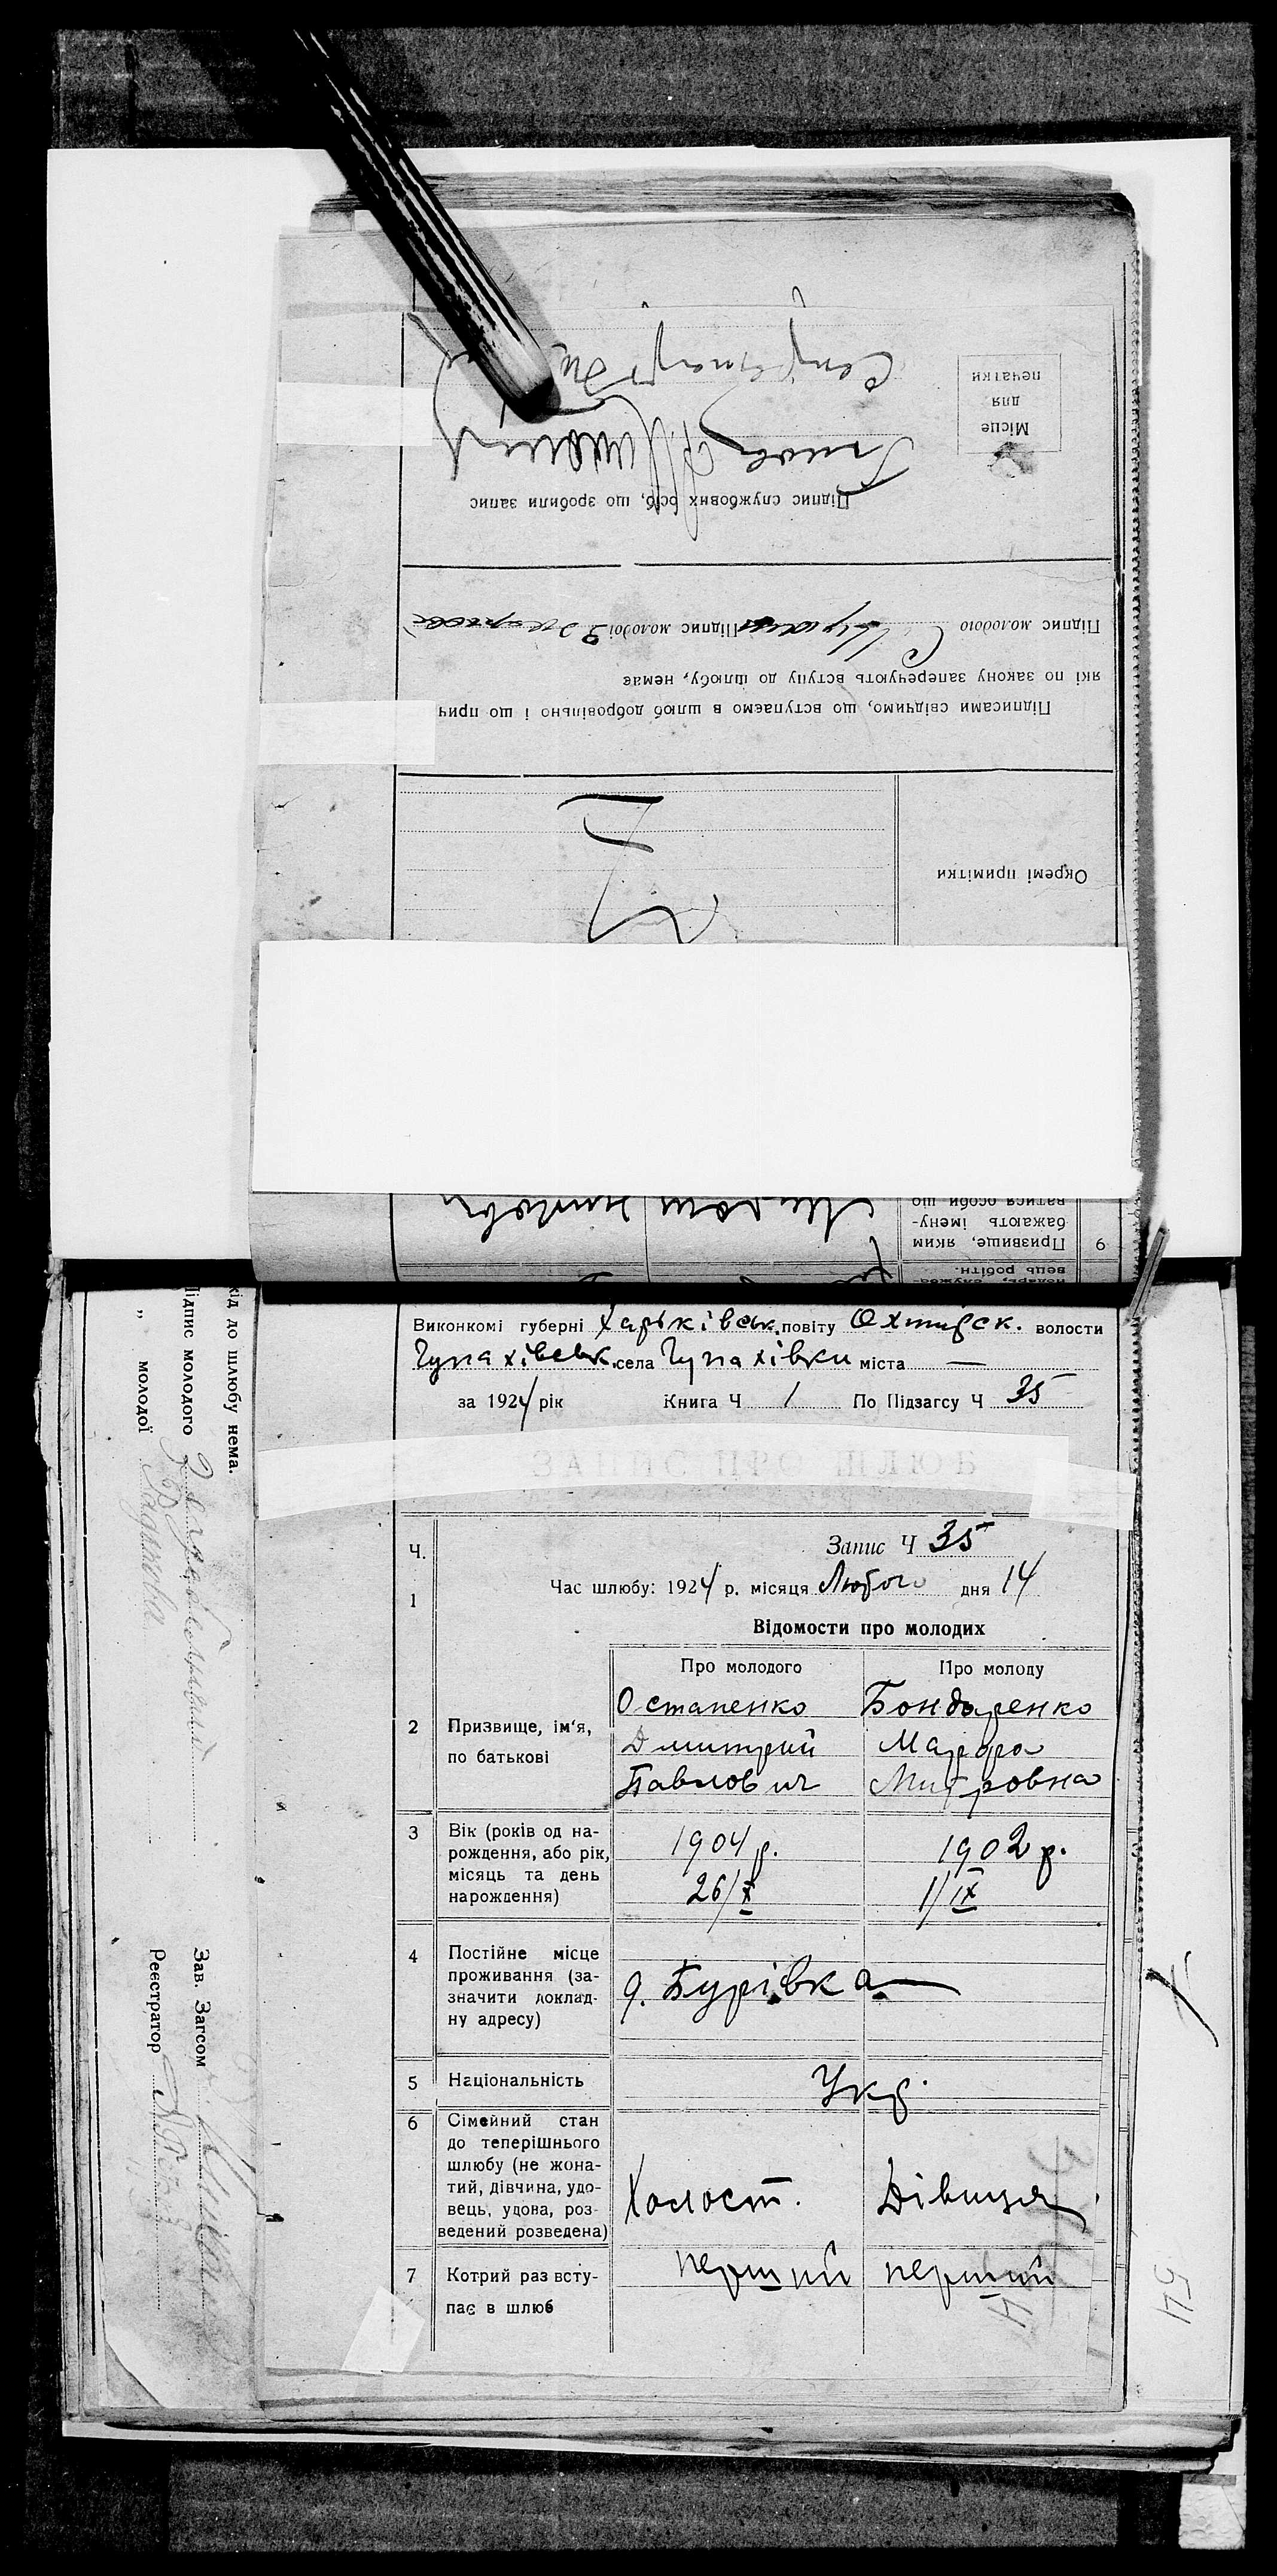 Місце
для
печатки
Підпис службових осіб, що зробили запис
Підпис молодого Підпис молодої
Підписами свідчимо, що вступаємо в шлюб добровільно і що прич
які по закону заперечують вступу до шлюбу, немає
Окремі примітки
9 Призвище, яким
бажають імену-
ватися особи що
вець робітн.
Виконкомі губерні Харьківськ. повіту Охтирск. волости
Чупахівськ. села Чупахівки міста —
за 1924 рік Книга Ч 1 По Підзагсу Ч 35
ЗАПИС ПРО ШЛЮБ
Ч. Запис Ч 35
1 Час шлюбу: 1924 р. місяця Лютого дня 14
Відомости про молодих
Про молодого Про молоду
2 Призвище, ім'я,
по батькові
Остапенко Бондаренко
Дмитрий Марфа
Павлович Митровна
3 Вік (років од на-
рождення, або рік,
місяць та день
нарождення)
1904 р. 1902 р.
26/X 1/IX
4 Постійне місце
проживання (за-
значити доклад-
ну адресу)
Бурівка
5 Національність Укр.
6 Сімейний стан
до теперішнього
шлюбу (не жона-
тий, дівчина, удо-
вець, удова, роз-
ведений розведена)
Холост. Дівиця
7 Котрий раз всту-
пає в шлюб
перший перший
хід до шлюбу нема.
Підпис молодого
„ молодої
Зав. Загсом
Реєстратор
54